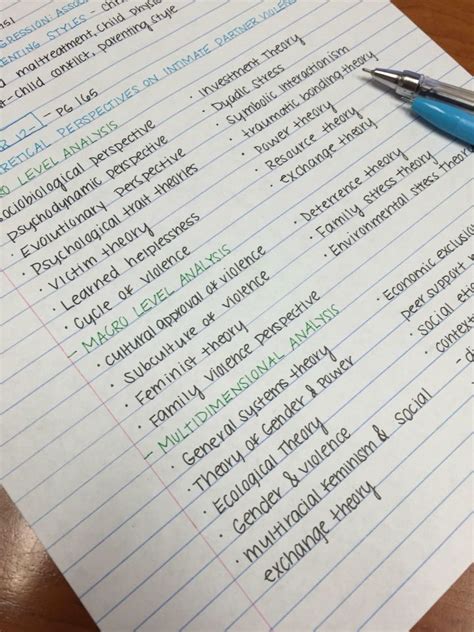 151
GRESSION: ASSOC
ENTING STYLES -
maltreatment, child physic
-child conflict, parenting style
12- - PG 165
RETICAL PERSPECTIVES ON INTIMATE PARTNER VIOLEN
RO LEVEL ANALYSIS
sociobiological perspective
psychodynamic perspective
• Evolutionary Perspective
• Psychological trait theories
• Victim theory
• Learned helplessness
• Cycle of violence
- MACRO LEVEL ANALYSIS
• cultural approval of violence
• Subculture of violence
• Feminist theory
• Family violence perspective
- MULTIDIMENSIONAL ANALYSIS
• General systems theory
• Theory of Gender & Power
• Ecological Theory
• Gender & violence
• multiracial feminism & social
exchange theory
• Investment Theory
• Dyadic Stress
• Symbolic interactionism
• traumatic bonding theory
• Power theory
• Resource theory
• exchange theory
• Deterrence theory
• Family stress theory
• Environmental stress Theor
• Economic exclusio
peer support
• social
• context